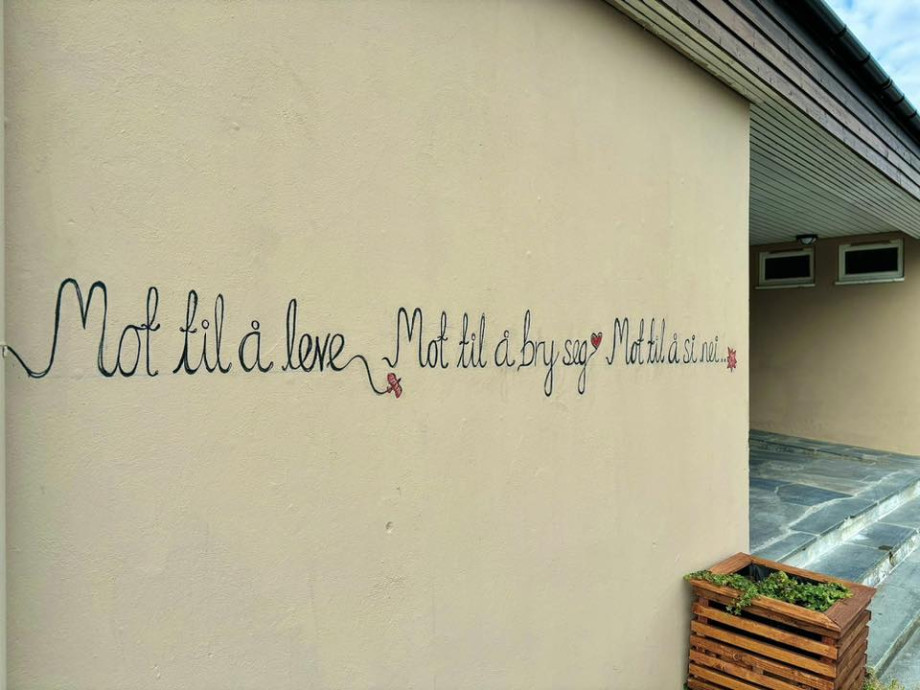 Mot til å leve Mot til å bry seg Mot til å si nei...